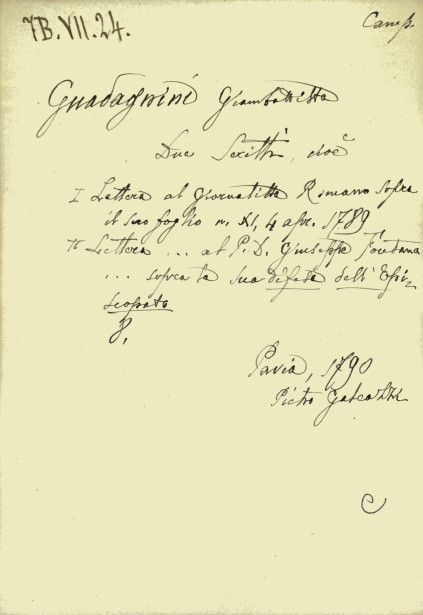 7B.VII.24.
Camp.
Guadagnini Giambattista
Due Scritti, cioè
I Lettera al Giornalista Romano sopra
il suo foglio n. XI, 4 apr. 1789
II Lettera ... al P. D. Giuseppe Fontana
... sopra la sua difesa dell' Epi=
scopato
8,
Pavia, 1790
Pietro Galeazzi